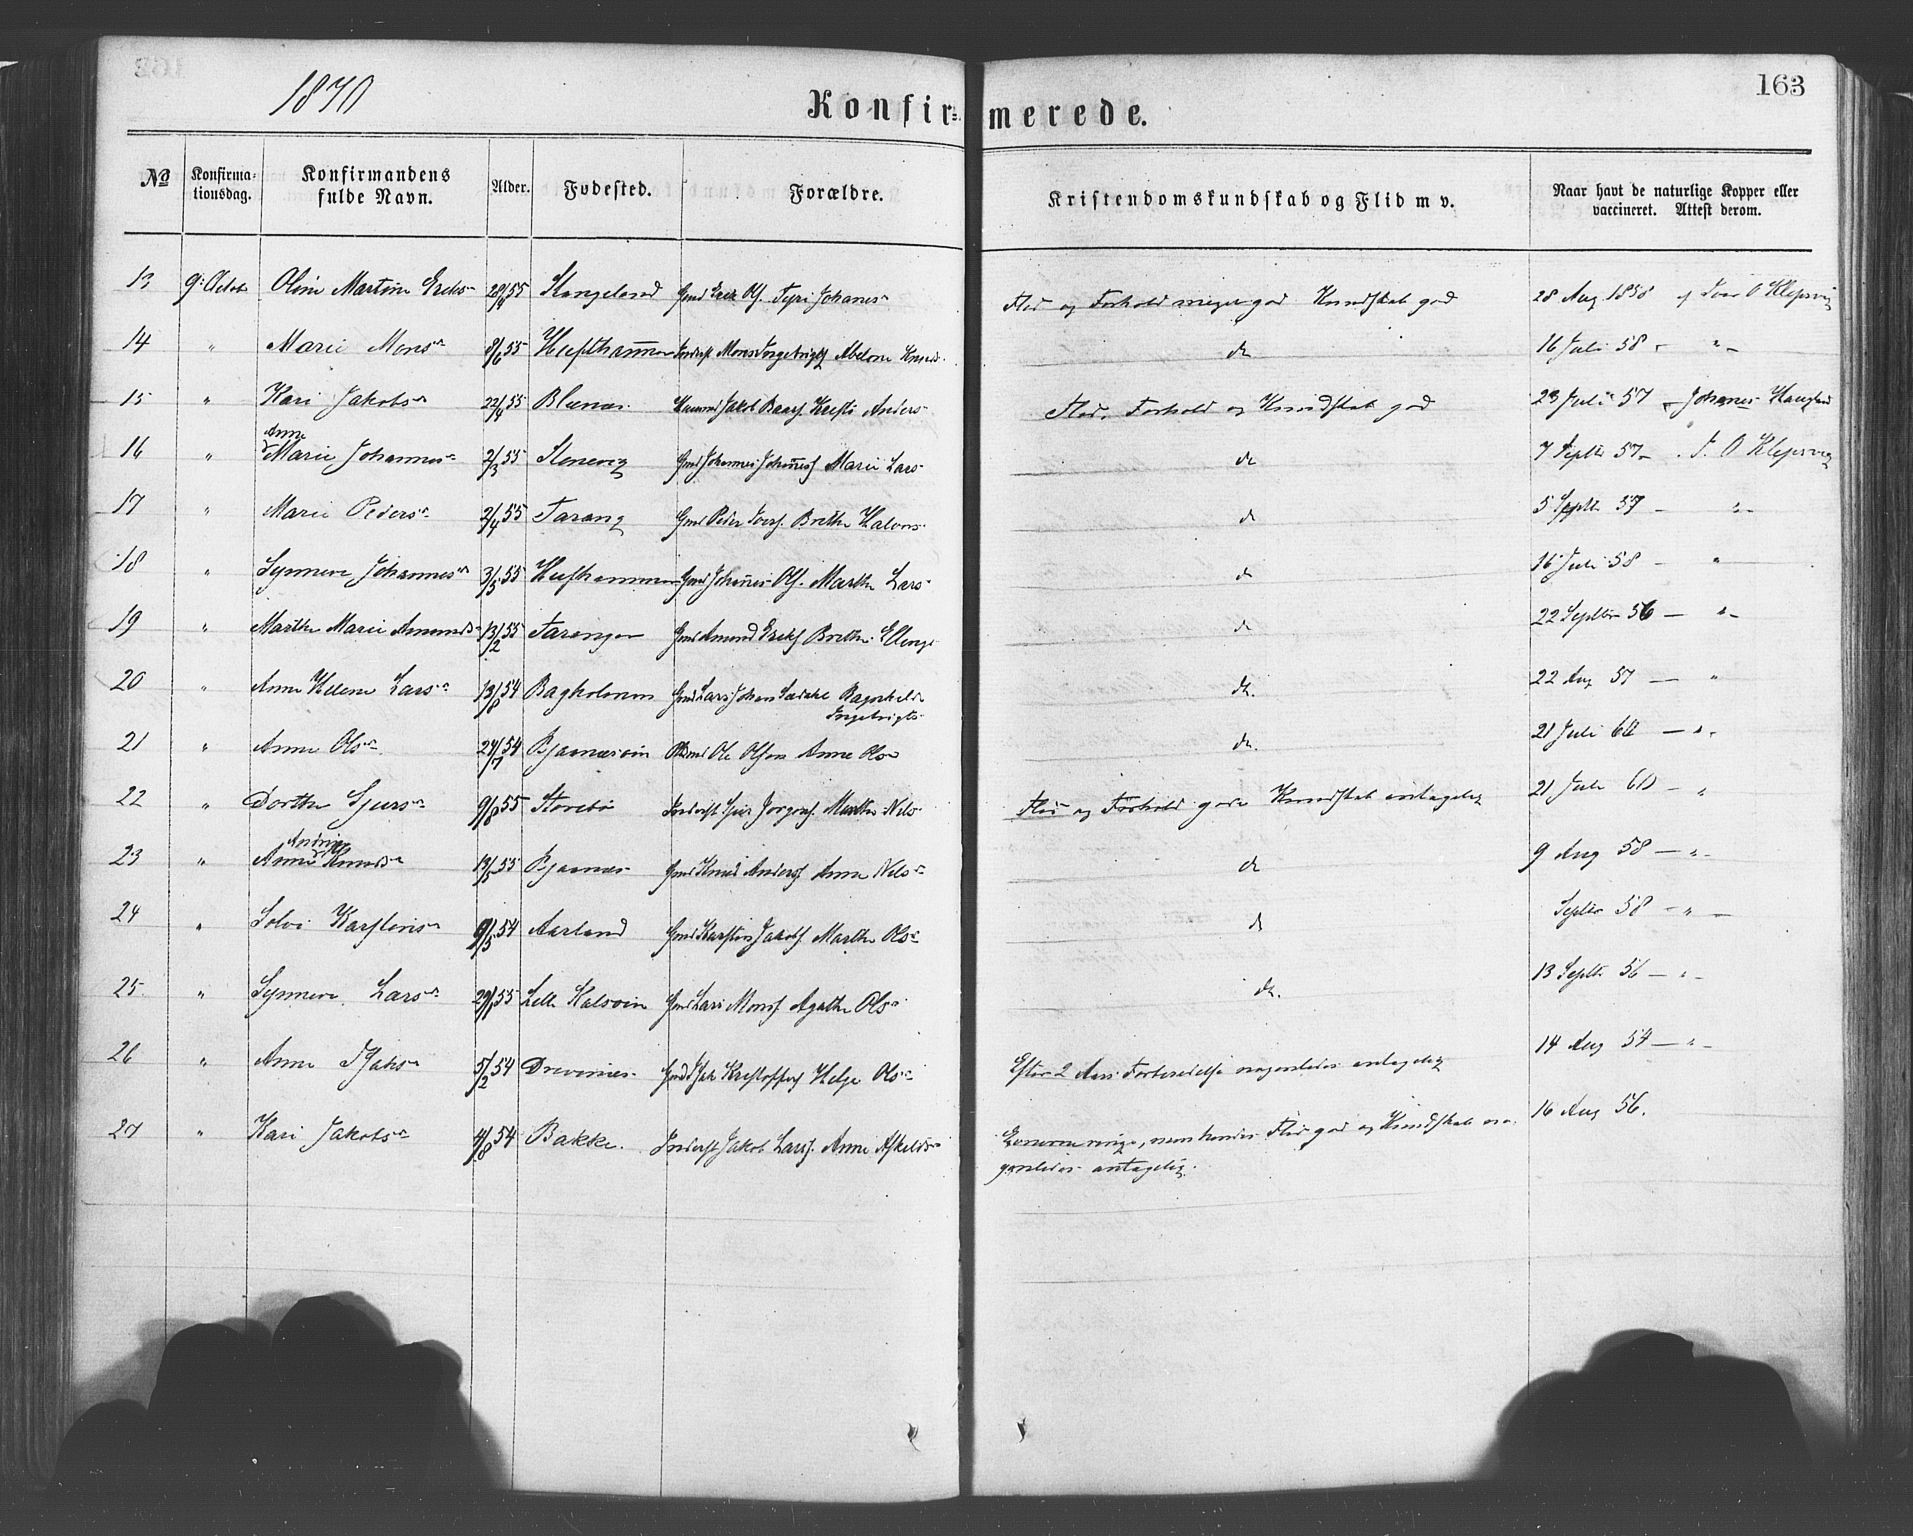 1870
163
Konfirmerede.
No Konfirmationsdag. Konfirmandens fulde Navn. Alder. Fødested. Forældre. Kristendomskundskab og Flid m v. Naar havt de naturlige Kopper eller vaccineret. Attest derom.
13 9: Octob Oline Martine 55 Stangeland Gmd Erik Ols. Johanes Flid og Forhold meget god Kundskab god 28 Aug 1858 O Klepsvig
14 " Marie Mons 8/6 55 Hufthammer Inderst Mons Abelone Knuds do 16 Juli 58 - " -
15 " Kari Jakobs 22/4 55 Blænes Jakob Kristi Anders Flid, Forhold og Kundskab god 23 Juli 57 Johannes Haugland
16 " Anne Marie Johannes 2/3 55 Stenevig Gmd Johannes Marie Lars do 7 Septbr 57 - O Klepsvig
17 " Marie Peders 2/4 55 Tarang Gmd Peder Brithe Halvors do 5 Septbr 57 - " -
18 " Synneve Johannes 3/5 55 Hufthammer Gmd Johannes Ols. Marthe Lars do 16 Juli 58 - "
19 " Marthe Marie Amunds 13/2 55 Tarangen Gmd Amund Eriks Brithe do 22 Septbr 56 - " -
20 " Anne Helene Lars 13/8 54 Bagholmen Gmd Lars Johan Ragnhild
Ingebrigts do. 22 Aug 57 - "
21 " Anne Ols 24/7 54 Bjaanæsøen Ole Olsen Anne Ols do. 21 Juli 60 - " -
22 " Dorthe Sjurs 9/8 55 Storebø Inderst Sjur Marthe Nils Flid og Forhold gode Kundskab antagelig 21 Juli 60 - "
Andrine
23 " Anne Knuds 13/5 55 Bjaanæs Gmd Knud Anders Anne Nils do 9 Aug 58 - " -
24 " Solvi Karstens 9/5 54 Aarland Gmd Karsten Jakobs Marthe Ols do Septbr 58 - " -
25 " Synneve Lars 55 Lille Kalsøen Gmd Lars Mons Agathe Ols do. 13 Septbr 56 - " -
26 " Anne Isaks 5/2 54 Drevsnes Gmd Isak Kristoffers Helga Ols Efter 2 Aars Forberedelse nogenledes antagelig 14 Aug 54 - " -
27 " Kari Jakobs 4/8 54 Bakke. Inderst Jakob Lars. Anne Askelds Evnerne ringe, men hendes Flid god og Kundskab no-
genledes antagelig. 16 Aug 56.